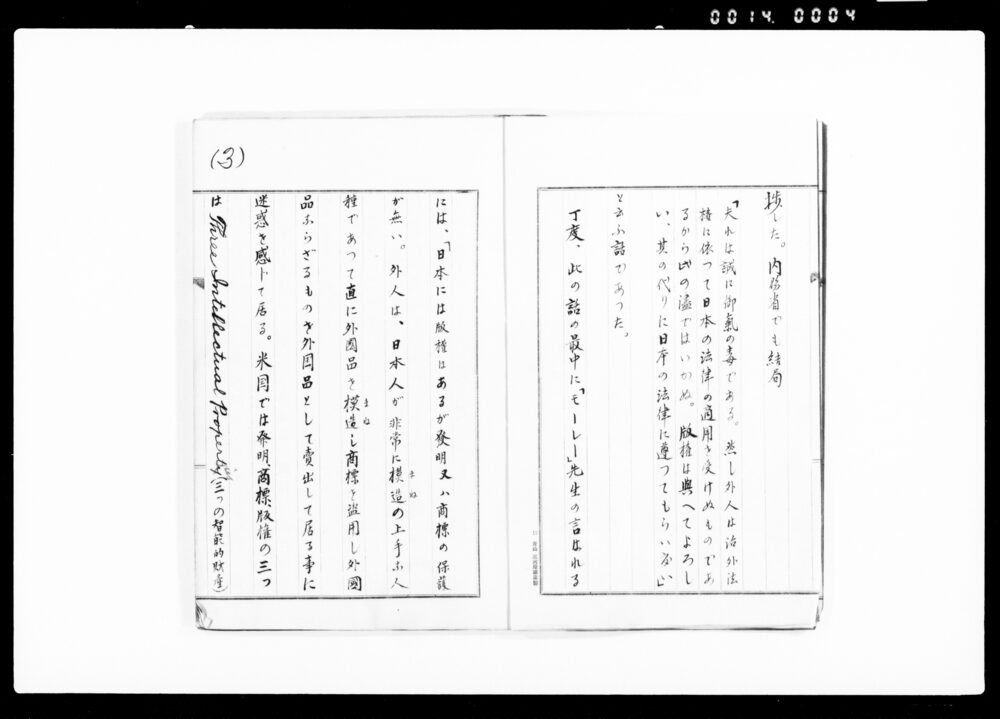 0014. 0004
捗した。内務省でも結局
「夫れは誠に御氣の毒である。然し外人は治外法
権に依つて日本の法律の適用を受けぬものであ
るから此の儘ではいかぬ。版権は與へてよろし
い、其の代りに日本の法律に遵つてもらいたい」
と云ふ話であつた。
丁度、此の話の最中に「モーレー」先生の言はれる
(3)
には、「日本には版権はあるが發明又ハ商標の保護
が無い。外人は、日本人が非常に模造の上手な人
まね
種であつて直に外國品を模造し商標を盗用し外國
まね
品ならざるものを外国品として賣出して居る事に
迷惑を感じて居る。米国では發明、商標、版権の三つ
は Three Intellectual Property (三つの智能的財産)